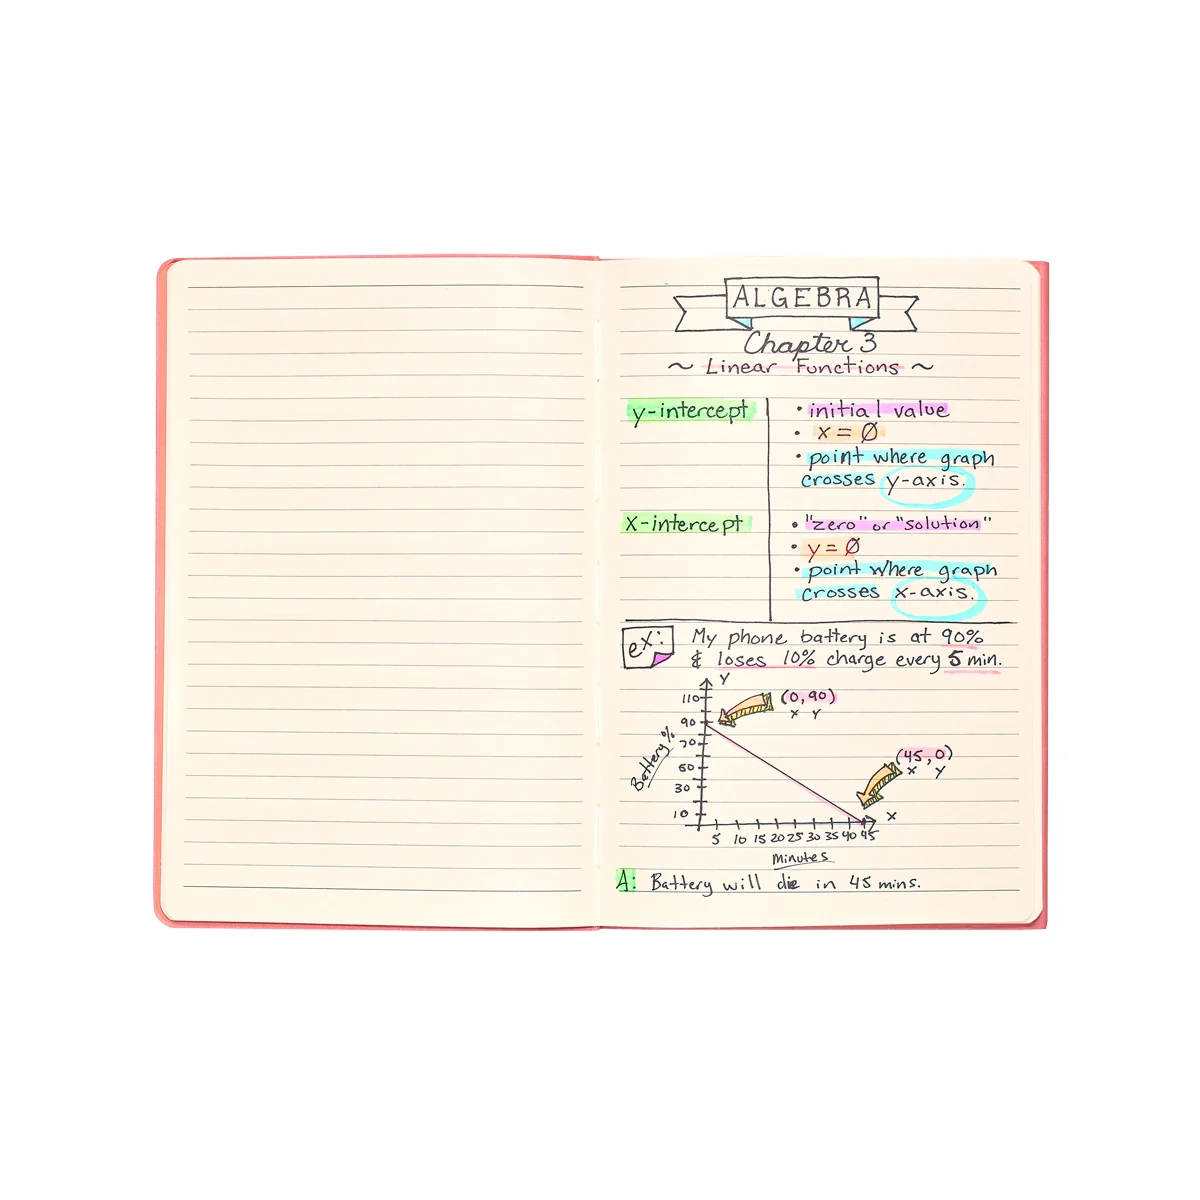 ALGEBRA
Chapter 3
~ Linear Functions ~
y-intercept
• initial value
• x = Ø
• point where graph
crosses y-axis.
x-intercept
• "zero" or "solution"
• y = Ø
• point where graph
crosses x-axis.
ex: My phone battery is at 90%
& loses 10% charge every 5 min.
Y
110
90
70
50
30
10
Battery %
(0, 90)
x Y
(45, 0)
x y
x
5 10 15 20 25 30 35 40 45
Minutes
A: Battery will die in 45 mins.